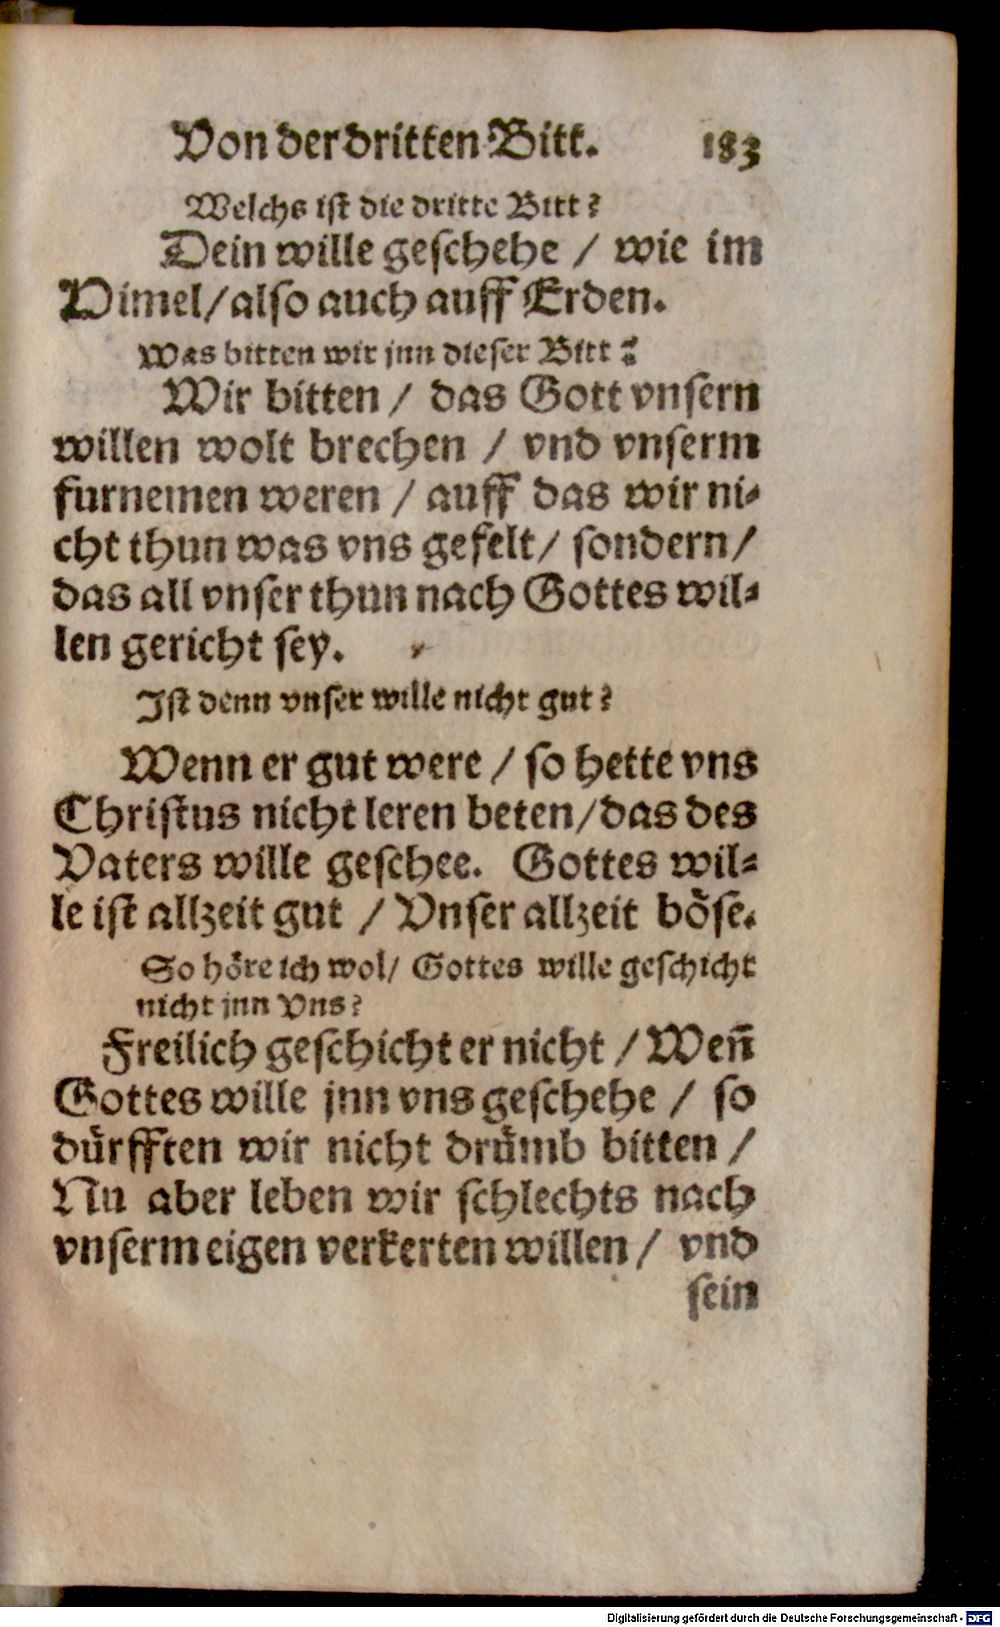 Von der dritten Bitt. 183
Welchs ist die dritte Bitt?
Dein wille geschehe / wie im
Himel/also auch auff Erden.
Was bitten wir jnn dieser Bitt?
Wir bitten / das Gott vnsern
willen wolt brechen / vnd vnserm
furnemen weren / auff das wir ni⸗
cht thun was vns gefelt/ sondern/
das all vnser thun nach Gottes wil⸗
len gericht sey.
Ist denn vnser wille nicht gut?
Wenn er gut were / so hette vns
Christus nicht leren beten/das des
Vaters wille geschee. Gottes wil⸗
le ist allzeit gut / Vnser allzeit böse.
So höre ich wol/ Gottes wille geschicht
nicht jnn Vns?
Freilich geschicht er nicht / Weñ
Gottes wille jnn vns geschehe / so
dürfften wir nicht drümb bitten /
Nu aber leben wir schlechts nach
vnserm eigen verkerten willen / vnd
sein
Digitalisierung gefördert durch die Deutsche Forschungsgemeinschaft - DFG